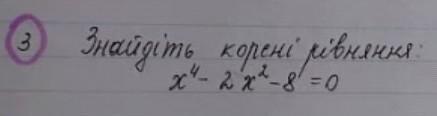 3 Знайдіть корені рівняння:
x⁴ - 2x² - 8 = 0